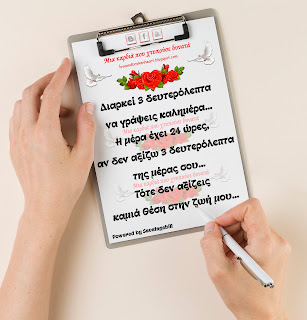 Μια καρδια που χτυπουσε δυνατα
Διαρκεί 3 δευτερόλεπτα
να γράψεις καλημέρα...
Η μέρα έχει 24 ώρες,
αν δεν αξίζω 3 δευτερόλεπτα
της μέρας σου...
Τότε δεν αξίζεις
καμιά θέση στην ζωή μου...